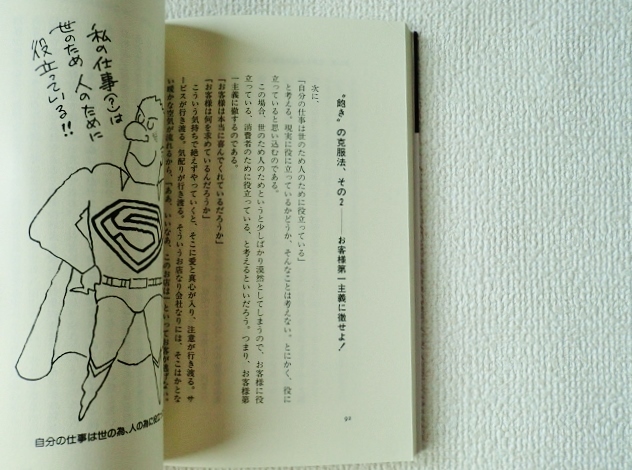 “飽き”の克服法、その2──お客様第一主義に徹せよ！
次に、
「自分の仕事は世のため人のために役立っている」
と考える。現実に役に立っているかどうか、そんなことは考えない。とにかく、役に
立っていると思い込むのである。
この場合、世のため人のためというと少しばかり漠然としてしまうので、お客様に役
立っている、消費者のために役立っている、と考えるといいだろう。つまり、お客様第
一主義に徹するのである。
「お客様は本当に喜んでくれているだろうか」
「お客様は何を求めているんだろうか」
こういう気持ちで絶えずやっていくと、そこに愛と真心が入り、注意が行き渡る。サ
ービスが行き渡る。気配りが行き渡る。そういうお店なり会社なりには、そこはかとな
い暖かな空気が流れるから、「ああ、いいなあ、このお店は」といってお客が
92
私の仕事(?)は
世のため 人のために
役立っている!!
S
自分の仕事は世の為、人の為に